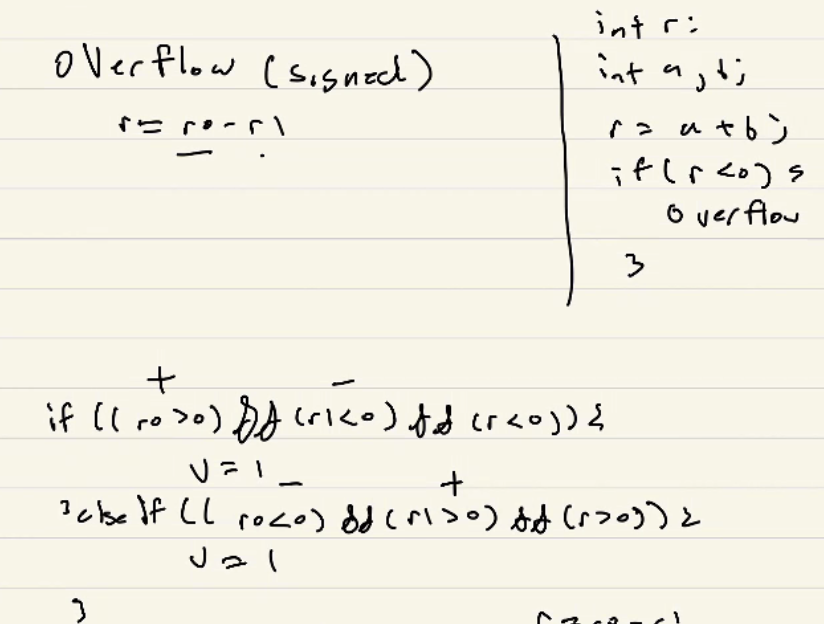 overflow (signed)
r = r0 - r1
int r:
int a, b;
r = a + b;
if (r <0) {
overflow
}
+ -
if (( r0 >0) && (r1<0) && (r <0)) {
V = 1
- +
} else if (( r0<0) && (r1 >0) && (r>0)) {
V = 1
}
r = r0 - r1